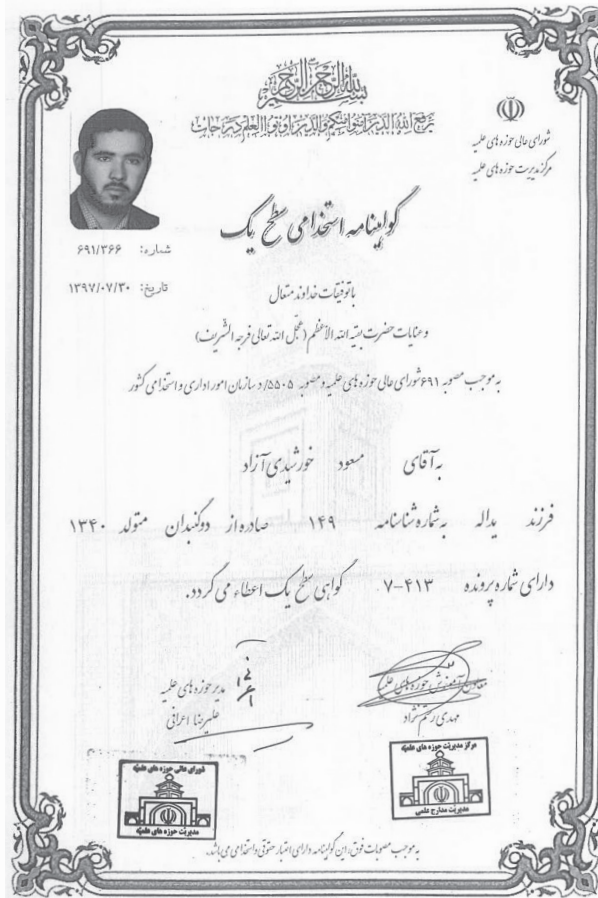 بسم الله الرحمن الرحیم
یرفع الله الذین آمنوا منکم والذین اوتوا العلم درجات
شورای عالی حوزه های علمیه
مرکز مدیریت حوزه های علمیه
گواهینامه استخدامی سطح یک
شماره: ۶۹۱/۳۶۶
تاریخ: ۱۳۹۷/۰۷/۳۰
با توفیقات خداوند متعال
و عنایات حضرت بقیه الله الأعظم (عجّل الله تعالی فرجه الشریف)
به موجب مصوبه ۶۹۱ شورای عالی حوزه های علمیه و مصوبه ۵۵۰۵/د سازمان امور اداری و استخدامی کشور
به آقای مسعود خورشیدی آزاد
فرزند یداله به شماره شناسنامه ۱۴۹ صادره از دوگنبدان متولد ۱۳۴۰
دارای شماره پرونده ۷-۴۱۳ گواهی سطح یک اعطاء می گردد.
معاون آموزش حوزه های علمیه
مهدی رستم نژاد
مدیر حوزه های علمیه
علیرضا اعرافی
مرکز مدیریت حوزه های علمیه
مدیریت مدارج علمی
شورای عالی حوزه های علمیه
مدیریت حوزه های علمیه
به موجب مصوبات فوق، این گواهینامه دارای اعتبار حقوقی و استخدامی می باشد.